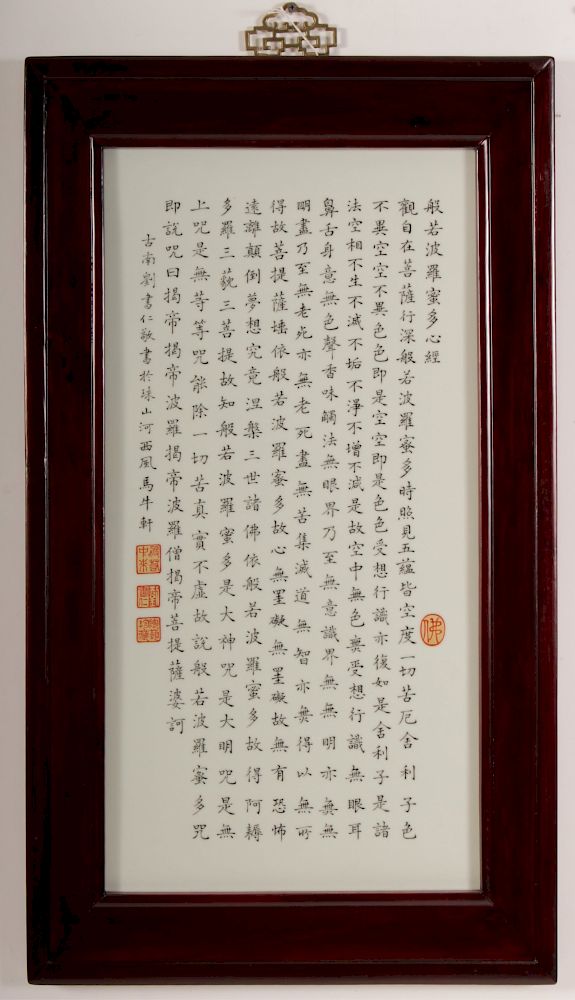 般若波羅蜜多心經
觀自在菩薩行深般若波羅蜜多時照見五蘊皆空度一切苦厄舍利子色
不異空空不異色色即是空空即是色色受想行識亦復如是舍利子是諸
法空相不生不滅不垢不淨不增不減是故空中無色無受想行識無眼耳
鼻舌身意無色聲香味觸法無眼界乃至無意識界無無明亦無無
明盡乃至無老死亦無老死盡無苦集滅道無智亦無得以無所
得故菩提薩埵依般若波羅蜜多故心無罣礙無罣礙故無有恐怖
遠離顛倒夢想究竟涅槃三世諸佛依般若波羅蜜多故得阿耨
多羅三藐三菩提故知般若波羅蜜多是大神咒是大明咒是無
上咒是無等等咒能除一切苦真實不虛故說般若波羅蜜多咒
即說咒曰揭帝揭帝波羅揭帝波羅僧揭帝菩提薩婆訶
古南劉書仁敬書於珠山河西風馬牛軒
佛